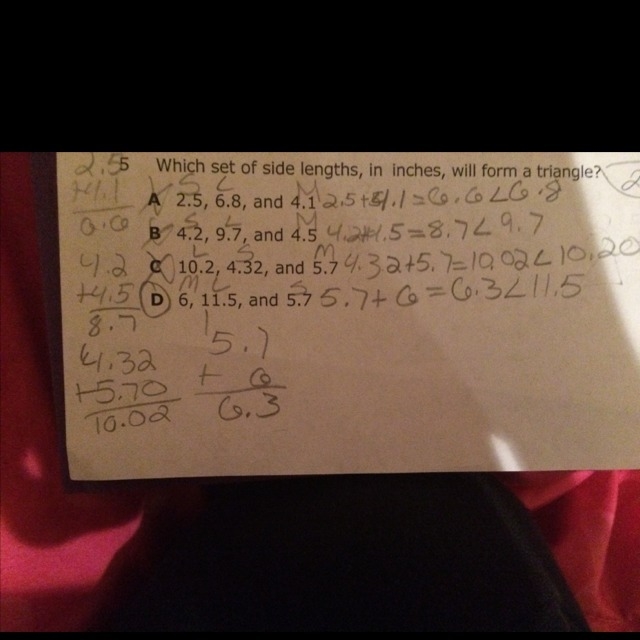 2.5
+4.1
6.6
4.2
+4.5
8.7
4.32
+5.70
10.02
5 Which set of side lengths, in inches, will form a triangle? 2
S L M
A 2.5, 6.8, and 4.1 2.5+4.1=6.6<6.8
S L M
B 4.2, 9.7, and 4.5 4.2+4.5=8.7<9.7
L S M
C 10.2, 4.32, and 5.7 4.32+5.7=10.02<10.20
M L S
D 6, 11.5, and 5.7 5.7+6=6.3<11.5
1
5.7
+ 6
6.3